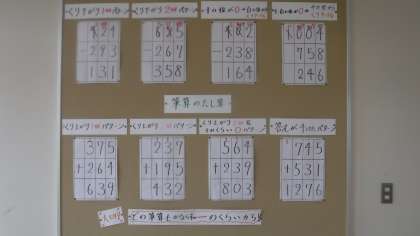 くり下がり1回パターン
くり下がり2回パターン
424
-293
131
625
-267
358
402
-238
164
1004
758
246
筆算のたし算
くり上がり1回パターン
くり上がり パターン
くらい 0 パターン
答えが パターン
375
+264
639
237
+195
432
564
+239
803
745
+531
1276
大切
どの筆算もかならず一のくらいから